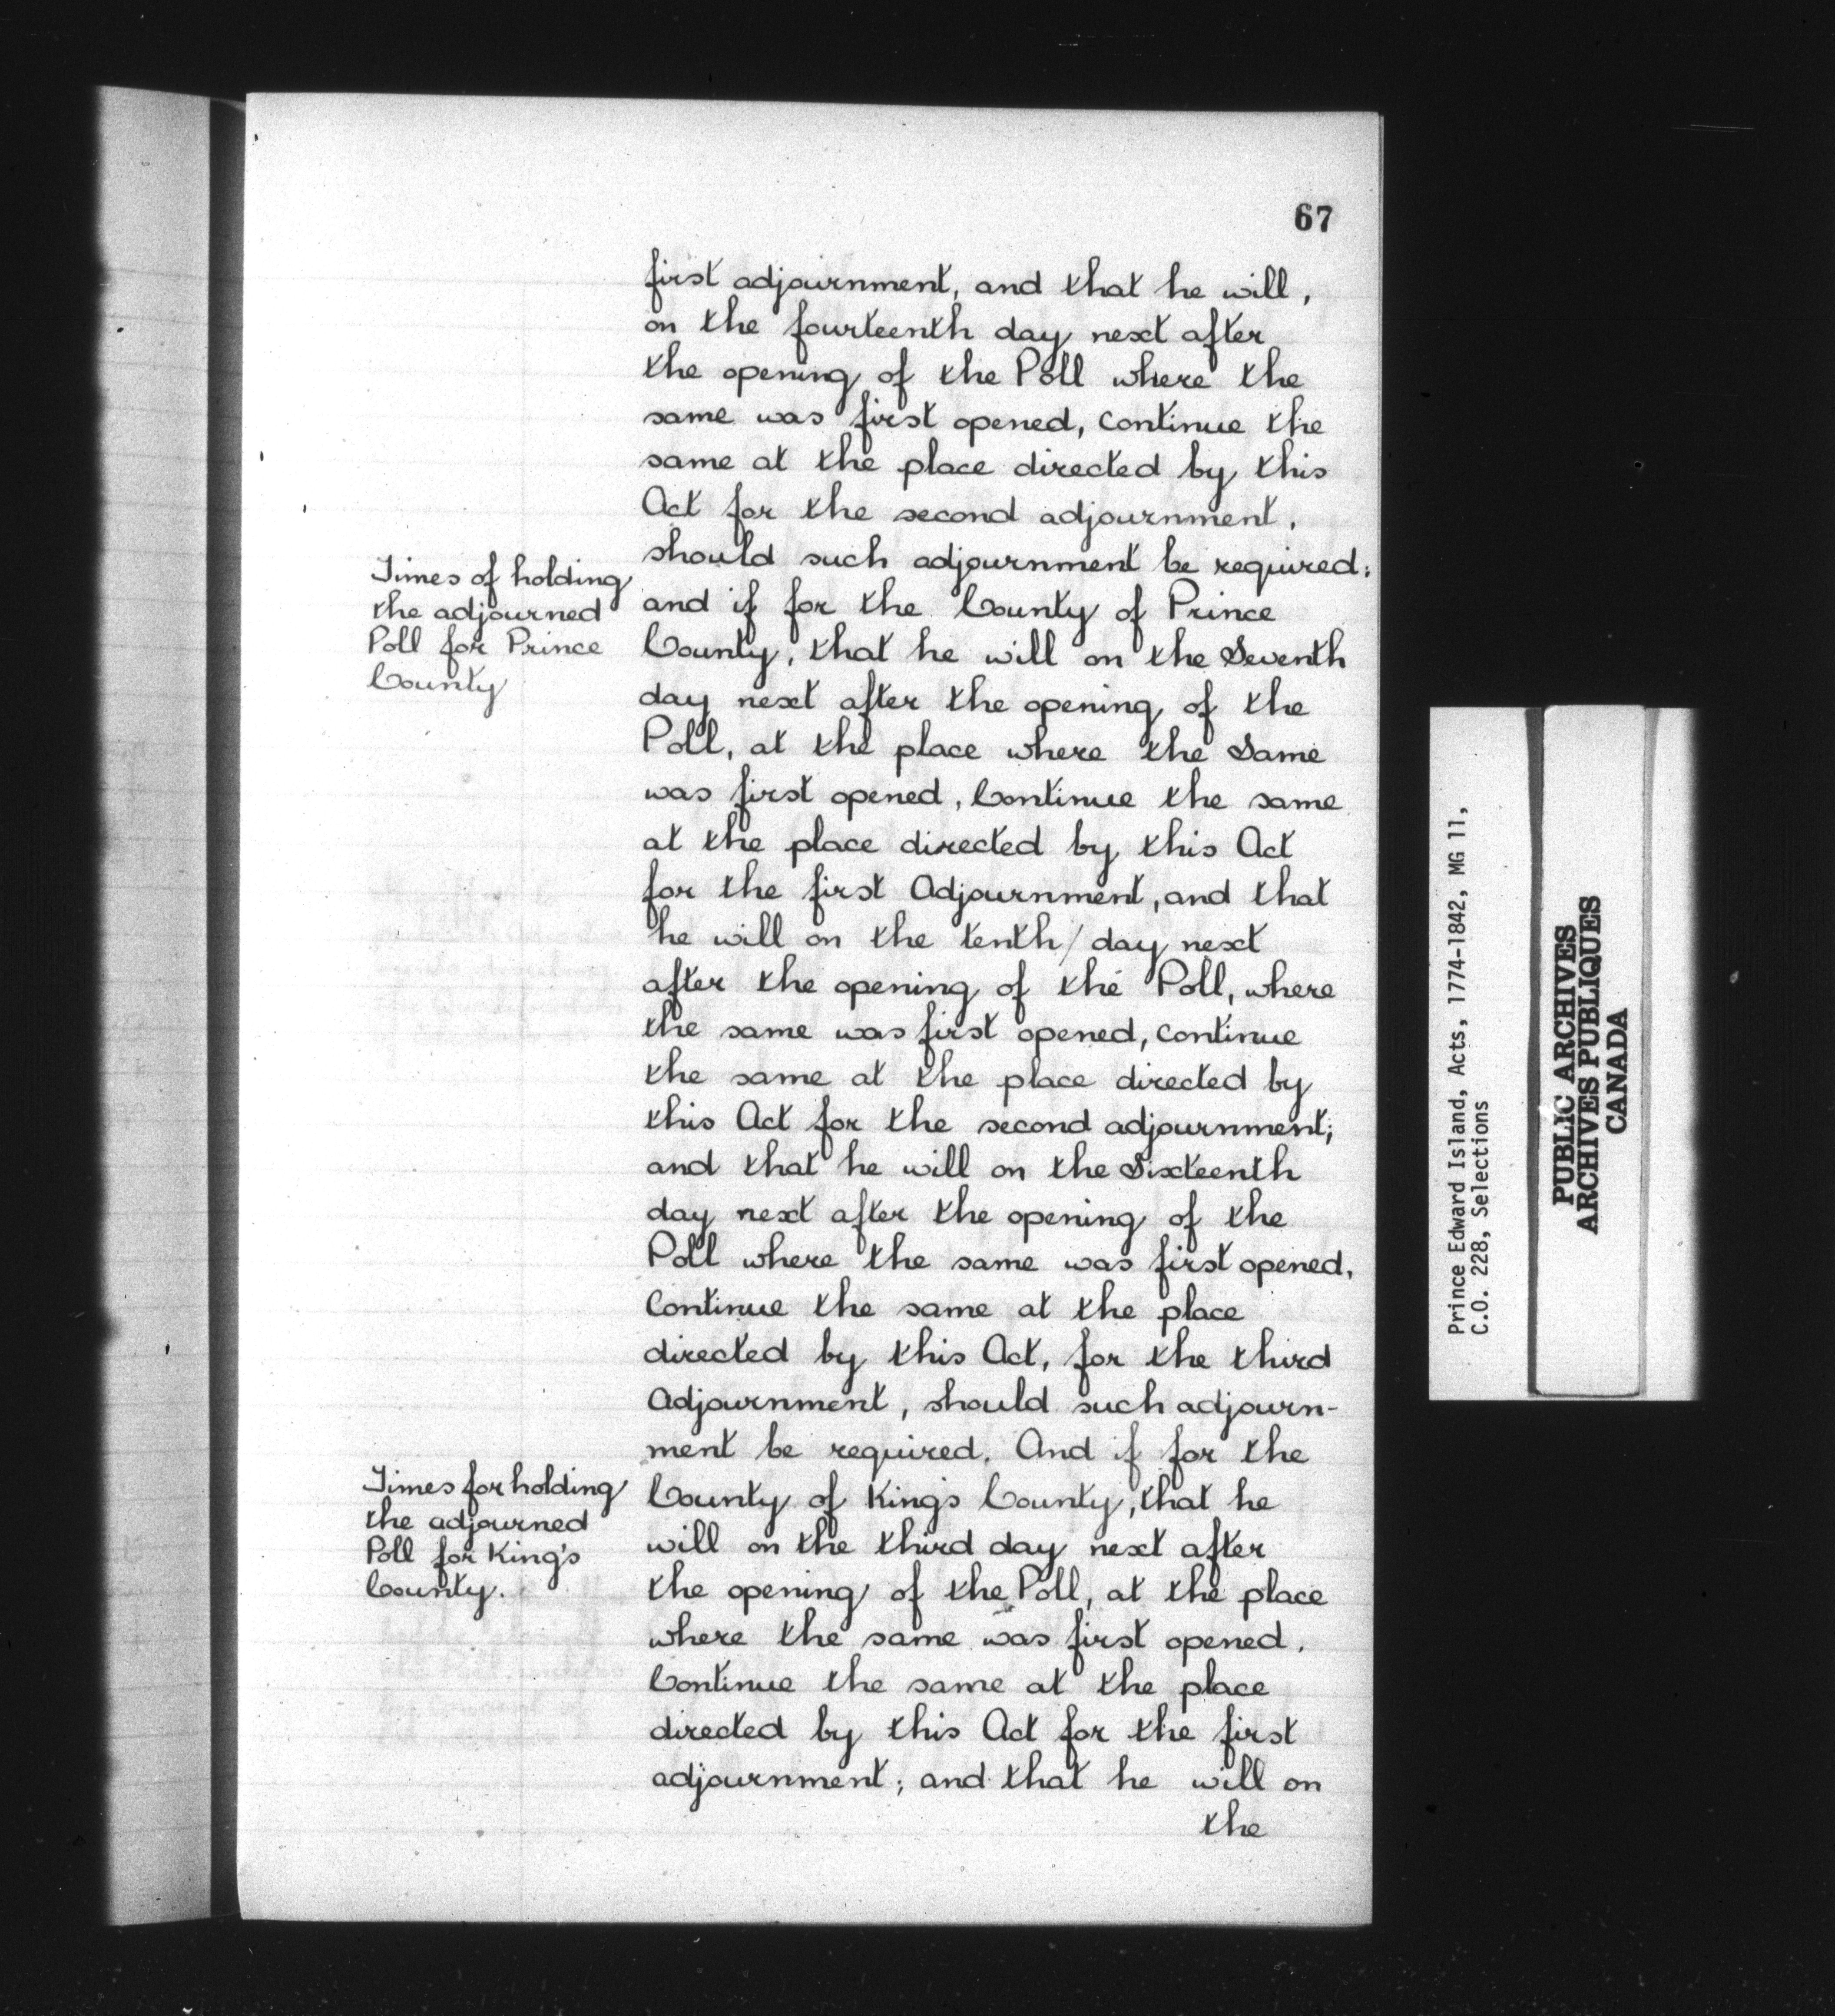 67
first adjournment, and that he will,
on the fourteenth day next after
the opening of the Poll where the
same was first opened, continue the
same at the place directed by this
Act for the second adjournment,
should such adjournment be required;
Times of holding
the adjourned
Poll for Prince
County
and if for the County of Prince
County, that he will on the Seventh
day next after the opening of the
Poll, at the place where the Same
was first opened, Continue the same
at the place directed by this Act
for the first Adjournment, and that
he will on the tenth/ day next
after the opening of the Poll, where
the same was first opened, continue
the same at the place directed by
this Act for the second adjournment;
and that he will on the Sixteenth
day next after the opening of the
Poll where the same was first opened,
Continue the same at the place
directed by this Act, for the third
Adjournment, should such adjourn-
ment be required. And if for the
Times for holding
the adjourned
Poll for King's
County.
County of King's County, that he
will on the third day next after
the opening of the Poll, at the place
where the same was first opened,
Continue the same at the place
directed by this Act for the first
adjournment; and that he will on
the
Prince Edward Island, Acts, 1774-1842, MG 11,
C.O. 228, Selections
PUBLIC ARCHIVES
ARCHIVES PUBLIQUES
CANADA